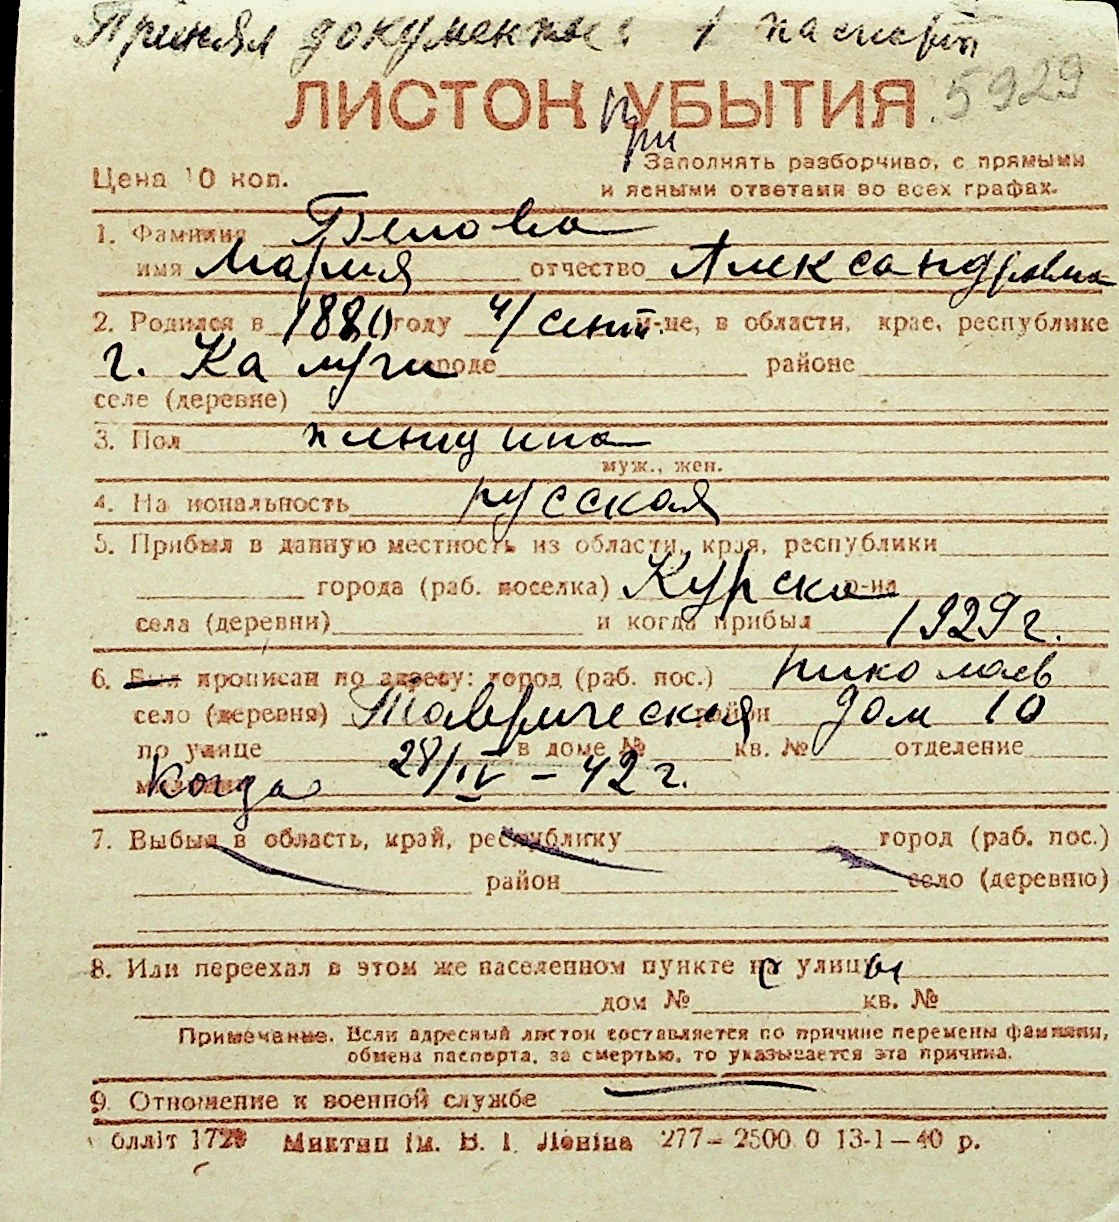 Принял документы: 1 паспорт
ЛИСТОК УБЫТИЯ 5929
при
Цена 10 коп.
Заполнять разборчиво, с прямыми
и ясными ответами во всех графах.
1. Фамилия Белова
имя Мария отчество Александровна
2. Родился в 1880 году 4/сент. р-не, в области, крае, республике
г. Калуги городе районе
селе (деревне)
3. Пол женщина
муж., жен.
4. Национальность русская
5. Прибыл в данную местность из области, края, республики
города (раб. поселка) Курска р-на
села (деревни) и когда прибыл 1929 г.
6. Был прописан по адресу: город (раб. пос.) Николаев
село (деревня) Таврическая район дом 10
по улице в доме № кв. № отделение
Когда 28/IV – 42 г.
7. Выбыл в область, край, республику город (раб. пос.)
район село (деревню)
8. Или переехал в этом же населенном пункте с улицы
дом № кв. №
Примечание. Если адресный листок составляется по причине перемены фамилии,
обмена паспорта, за смертью, то указывается эта причина.
9. Отношение к военной службе
Облліт 172 Миктип ім. В. І. Леніна 277–2500.0 13-1–40 р.